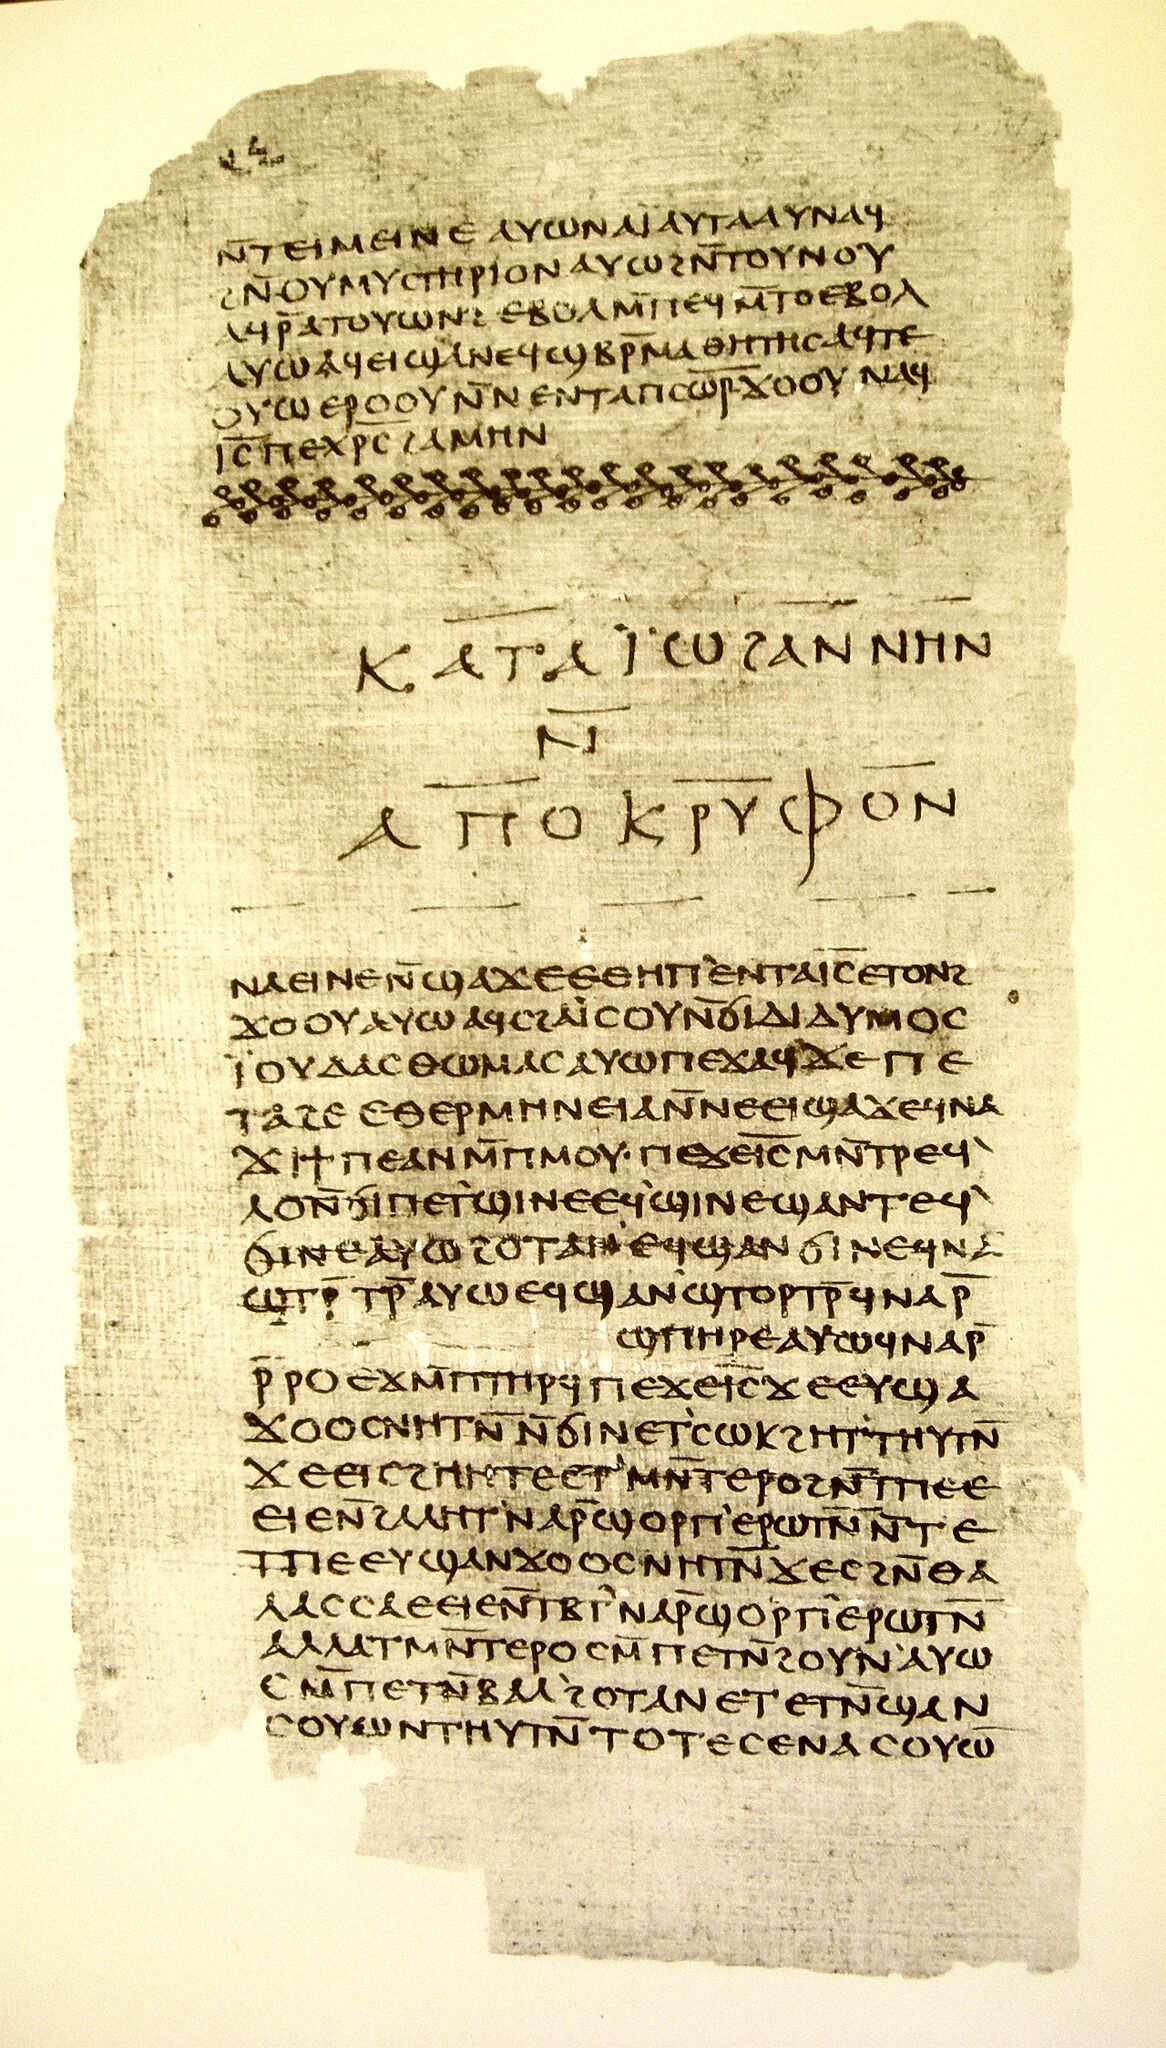 ⲛ̄ⲧⲉⲓⲙⲉⲓⲛⲉ ⲁⲩⲱ ⲛⲁⲓ̈ ⲁⲩⲧⲁⲁⲩ ⲛⲁϥ
ϩⲛ̄ⲟⲩⲙⲩⲥⲧⲏⲣⲓⲟⲛ ⲁⲩⲱ ϩⲛ̄ⲧⲟⲩⲛⲟⲩ
ⲁϥⲣ̄ⲁⲧⲟⲩⲱⲛϩ ⲉⲃⲟⲗ ⲙ̄ⲡⲉϥⲙ̄ⲧⲟ ⲉⲃⲟⲗ
ⲁⲩⲱ ⲁϥⲉⲓ ϣⲁ ⲛⲉϥϣⲃⲣ̄ⲙⲁⲑⲏⲧⲏⲥ ⲁϥⲧⲉ
ⲟⲩⲱ ⲉⲣⲟⲟⲩ ⲛ̄ⲛⲉⲛⲧⲁⲡⲥⲱ̅ⲣ̅ ϫⲟⲟⲩ ⲛⲁϥ
ⲓ̅ⲥ̅ ⲡⲉⲭ̅ⲣ̅ⲥ̅ ϩⲁⲙⲏⲛ
ⲕⲁⲧⲁ ⲓ̈ⲱϩⲁⲛⲛⲏⲛ
ⲛ̄
ⲁⲡⲟⲕⲣⲩⲫⲟⲛ
ⲛⲁⲉⲓ ⲛⲉ ⲛ̄ϣⲁϫⲉ ⲉⲑⲏⲡ ⲉⲛⲧⲁⲓ̅ⲥ̅ ⲉⲧⲟⲛϩ
ϫⲟⲟⲩ ⲁⲩⲱ ⲁϥⲥϩⲁⲓ̈ⲥⲟⲩ ⲛ̄ϭⲓ ⲇⲓⲇⲩⲙⲟⲥ
ⲓ̈ⲟⲩⲇⲁⲥ ⲑⲱⲙⲁⲥ ⲁⲩⲱ ⲡⲉϫⲁϥ ϫⲉ ⲡⲉ
ⲧⲁϩⲉ ⲉⲑⲉⲣⲙⲏⲛⲉⲓⲁ ⲛ̄ⲛⲉⲉⲓϣⲁϫⲉ ϥⲛⲁ
ϫⲓ ϯⲡⲉ ⲁⲛ ⲙ̄ⲡⲙⲟⲩ· ⲡⲉϫⲉ ⲓ̅ⲥ̅ ⲙⲛ̄ⲧⲣⲉϥ
ⲗⲟ ⲛ̄ϭⲓ ⲡⲉⲧϣⲓⲛⲉ ⲉϥϣⲓⲛⲉ ϣⲁⲛⲧⲉϥ
ϭⲓⲛⲉ ⲁⲩⲱ ϩⲟⲧⲁⲛ ⲉϥϣⲁⲛϭⲓⲛⲉ ϥⲛⲁ
ϣⲧⲣ̄ⲧⲣ̄ ⲁⲩⲱ ⲉϥϣⲁⲛϣⲧⲟⲣⲧⲣ̄ ϥⲛⲁⲣ̄
ϣⲡⲏⲣⲉ ⲁⲩⲱ ϥⲛⲁⲣ̄
ⲣ̄ⲣⲟ ⲉϫⲙ̄ ⲡⲧⲏⲣϥ ⲡⲉϫⲉ ⲓ̅ⲥ̅ ϫⲉ ⲉⲩϣⲁ
ϫⲟⲟⲥ ⲛⲏⲧⲛ̄ ⲛ̄ϭⲓ ⲛⲉⲧⲥⲱⲕ ϩⲏⲧ ⲧⲏⲩⲧⲛ̄
ϫⲉ ⲉⲓⲥϩⲏⲏⲧⲉ ⲉⲧⲙⲛ̄ⲧⲉⲣⲟ ϩⲛ̄ ⲧⲡⲉ ⲉ
ⲉⲓⲉ ⲛ̄ϩⲁⲗⲏⲧ ⲛⲁⲣ̄ϣⲟⲣⲡ ⲉⲣⲱⲧⲛ̄ ⲛ̄ⲧⲉ
ⲧⲡⲉ ⲉⲩϣⲁⲛϫⲟⲟⲥ ⲛⲏⲧⲛ̄ ϫⲉ ⲥϩⲛ̄ ⲑⲁ
ⲗⲁⲥⲥⲁ ⲉⲉⲓⲉ ⲛ̄ⲧⲃⲧ ⲛⲁⲣ̄ϣⲟⲣⲡ ⲉⲣⲱⲧⲛ̄
ⲁⲗⲗⲁ ⲧⲙⲛ̄ⲧⲉⲣⲟ ⲥⲙ̄ⲡⲉⲧⲛ̄ϩⲟⲩⲛ ⲁⲩⲱ
ⲥⲙ̄ⲡⲉⲧⲛ̄ⲃⲁⲗ ϩⲟⲧⲁⲛ ⲉⲧⲉⲧⲛ̄ϣⲁⲛ
ⲥⲟⲩⲱⲛ ⲧⲏⲩⲧⲛ̄ ⲧⲟⲧⲉ ⲥⲉⲛⲁⲥⲟⲩⲱ̄